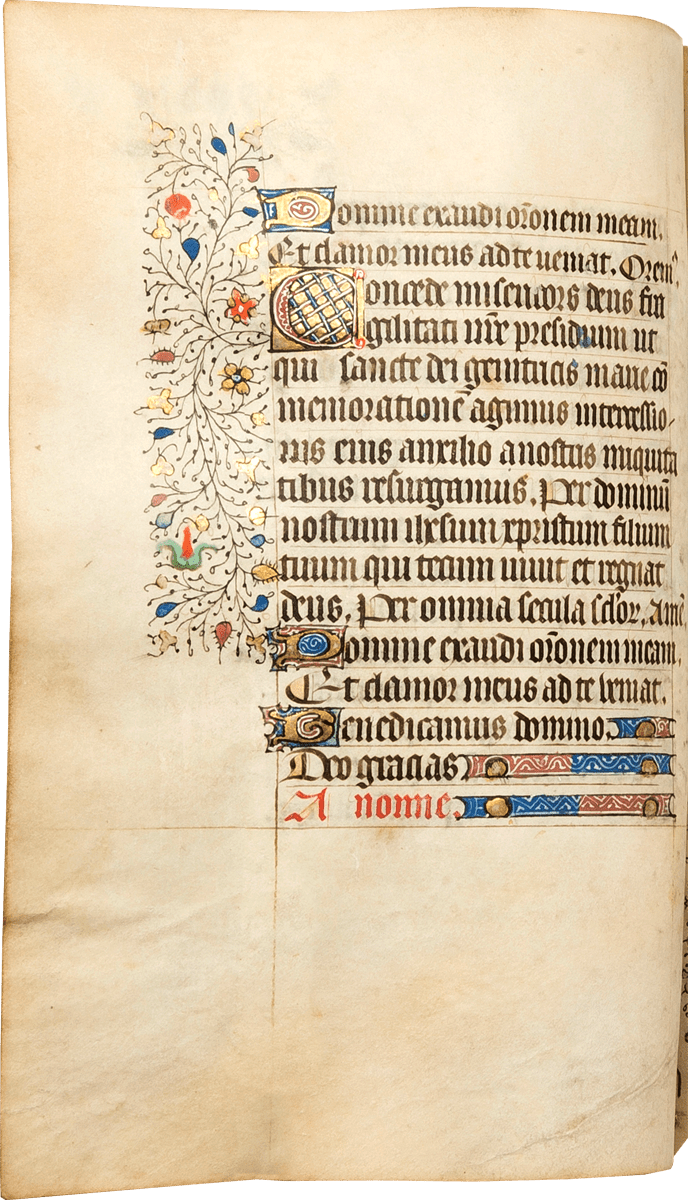 Domine exaudi or̄onem meam.
Et clamor meus ad te veniat. Orem⁹.
Concede misericors deus fra
gilitati nr̄e presidium ut
qui sancte dei genitricis marie cō
memorationē agimus intercessio
nis eius auxilio a nostris iniquita
tibus resurgamus. Per dominū
nostrum ihesum xpristum filium
tuum qui tecum vivit et regnat
deus. Per omnia secula sc̄lor. Amē
Domine exaudi or̄onem meam.
Et clamor meus ad te veniat.
Benedicamus domino.
Deo gracias
A nonne.